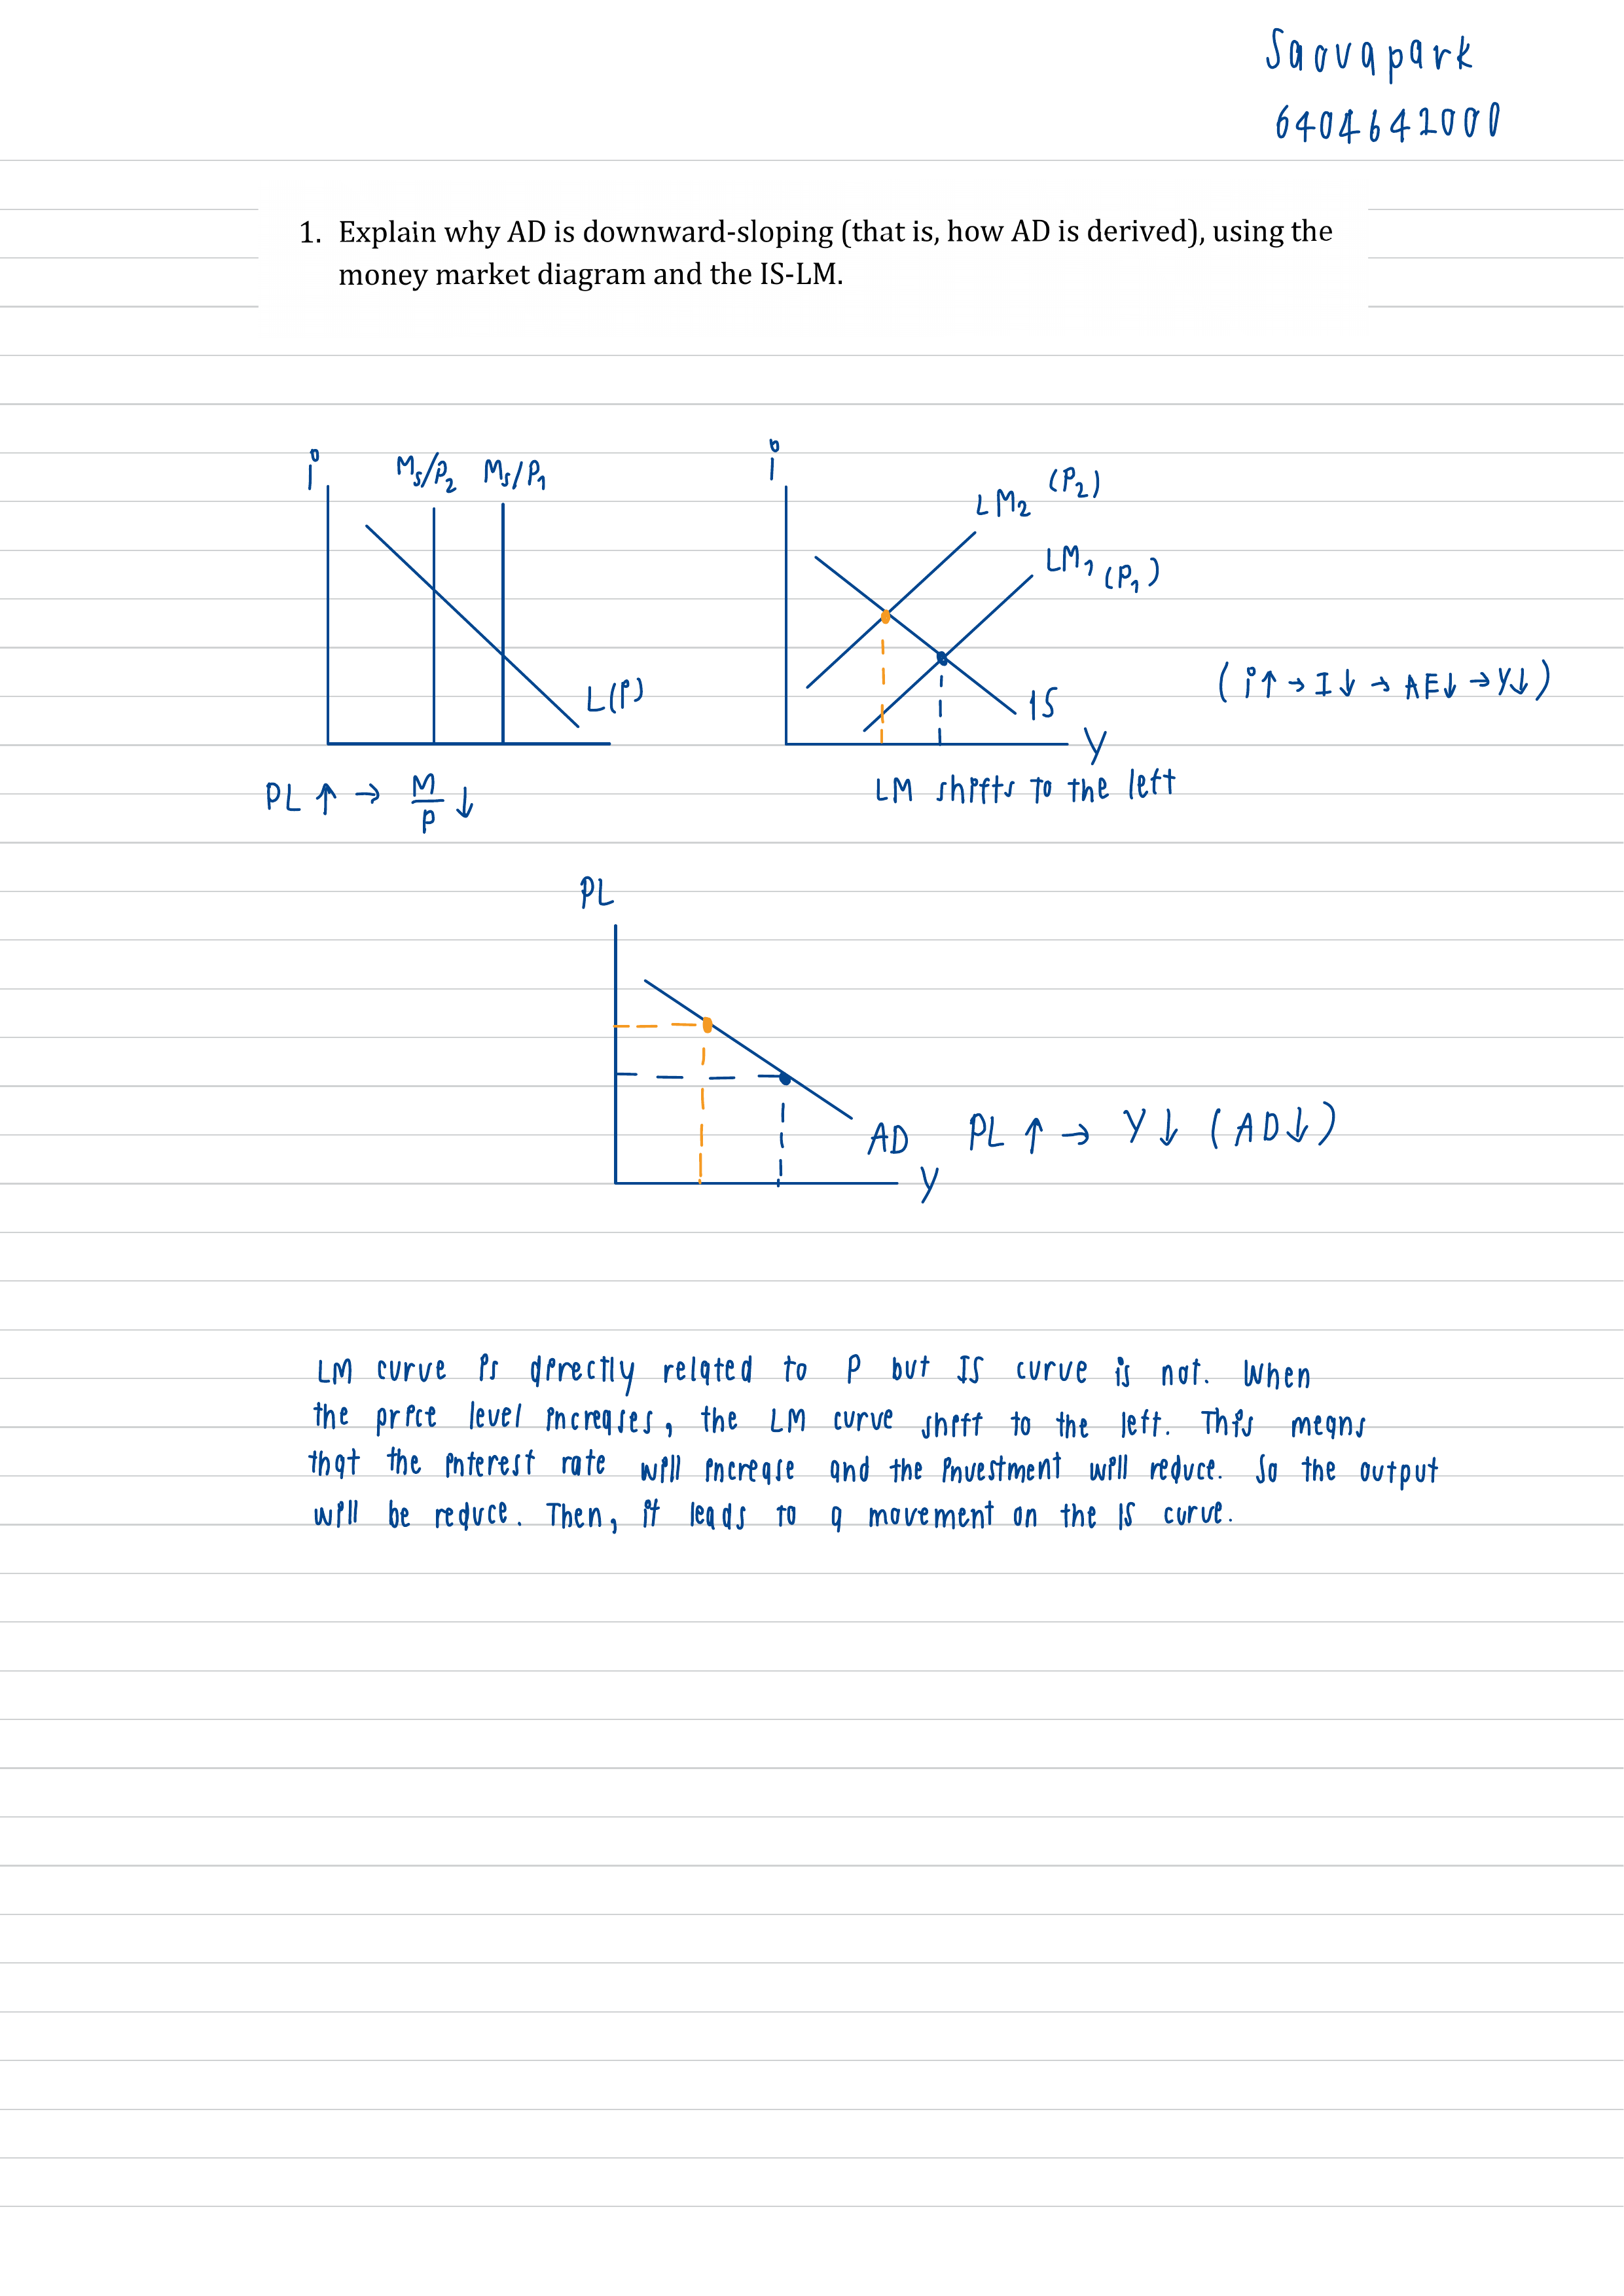 Saovapark
6404642000
1. Explain why AD is downward-sloping (that is, how AD is derived), using the
money market diagram and the IS-LM.
i
Ms/P2 Ms/P1
L(P)
PL ↑ → M/P ↓
i
LM2 (P2)
LM1 (P1)
IS
Y
LM shifts to the left
( i↑ → I↓ → AE↓ → Y↓ )
PL
AD
Y
PL ↑ → Y ↓ ( AD↓ )
LM curve is directly related to P but IS curve is not. When
the price level increases, the LM curve shift to the left. This means
that the interest rate will increase and the investment will reduce. So the output
will be reduce. Then, it leads to a movement on the IS curve.